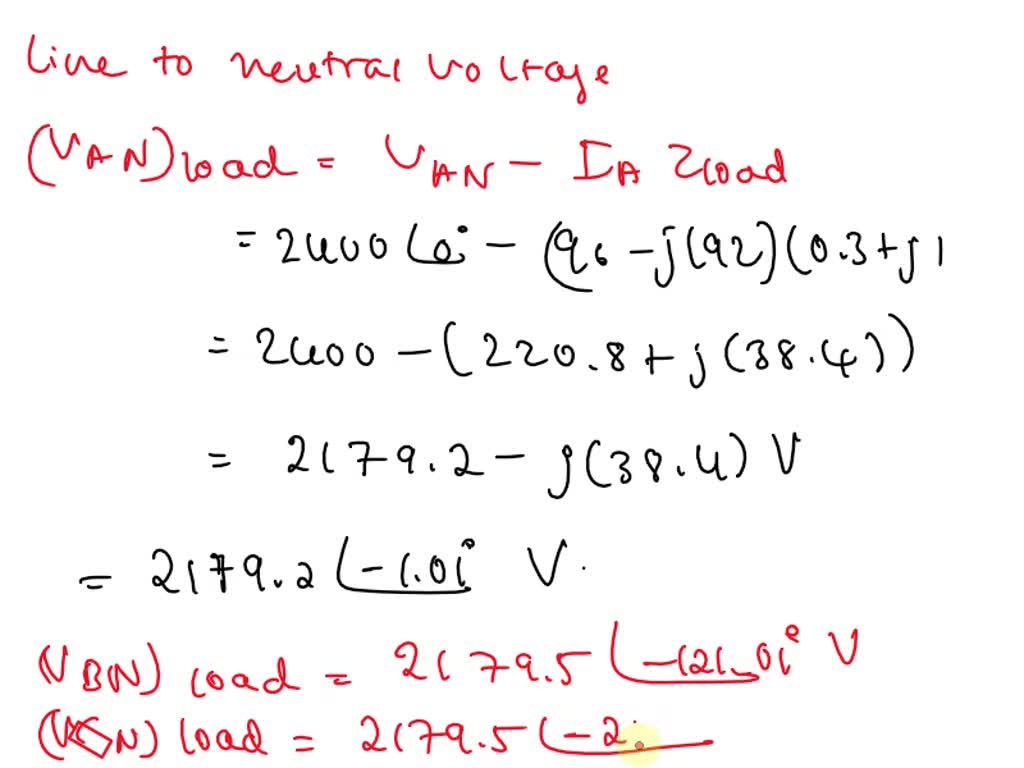 Line to neutral voltage
(VAN)load = VAN - IA Zload
= 2400 ∠0° - (96 - j(92)(0.3+j1
= 2400 - (220.8 + j(38.4))
= 2179.2 - j(38.4) V
= 2179.2 ∠-1.01° V.
(VBN) load = 2179.5 ∠-121.01° V
(VCN) load = 2179.5 ∠-2.